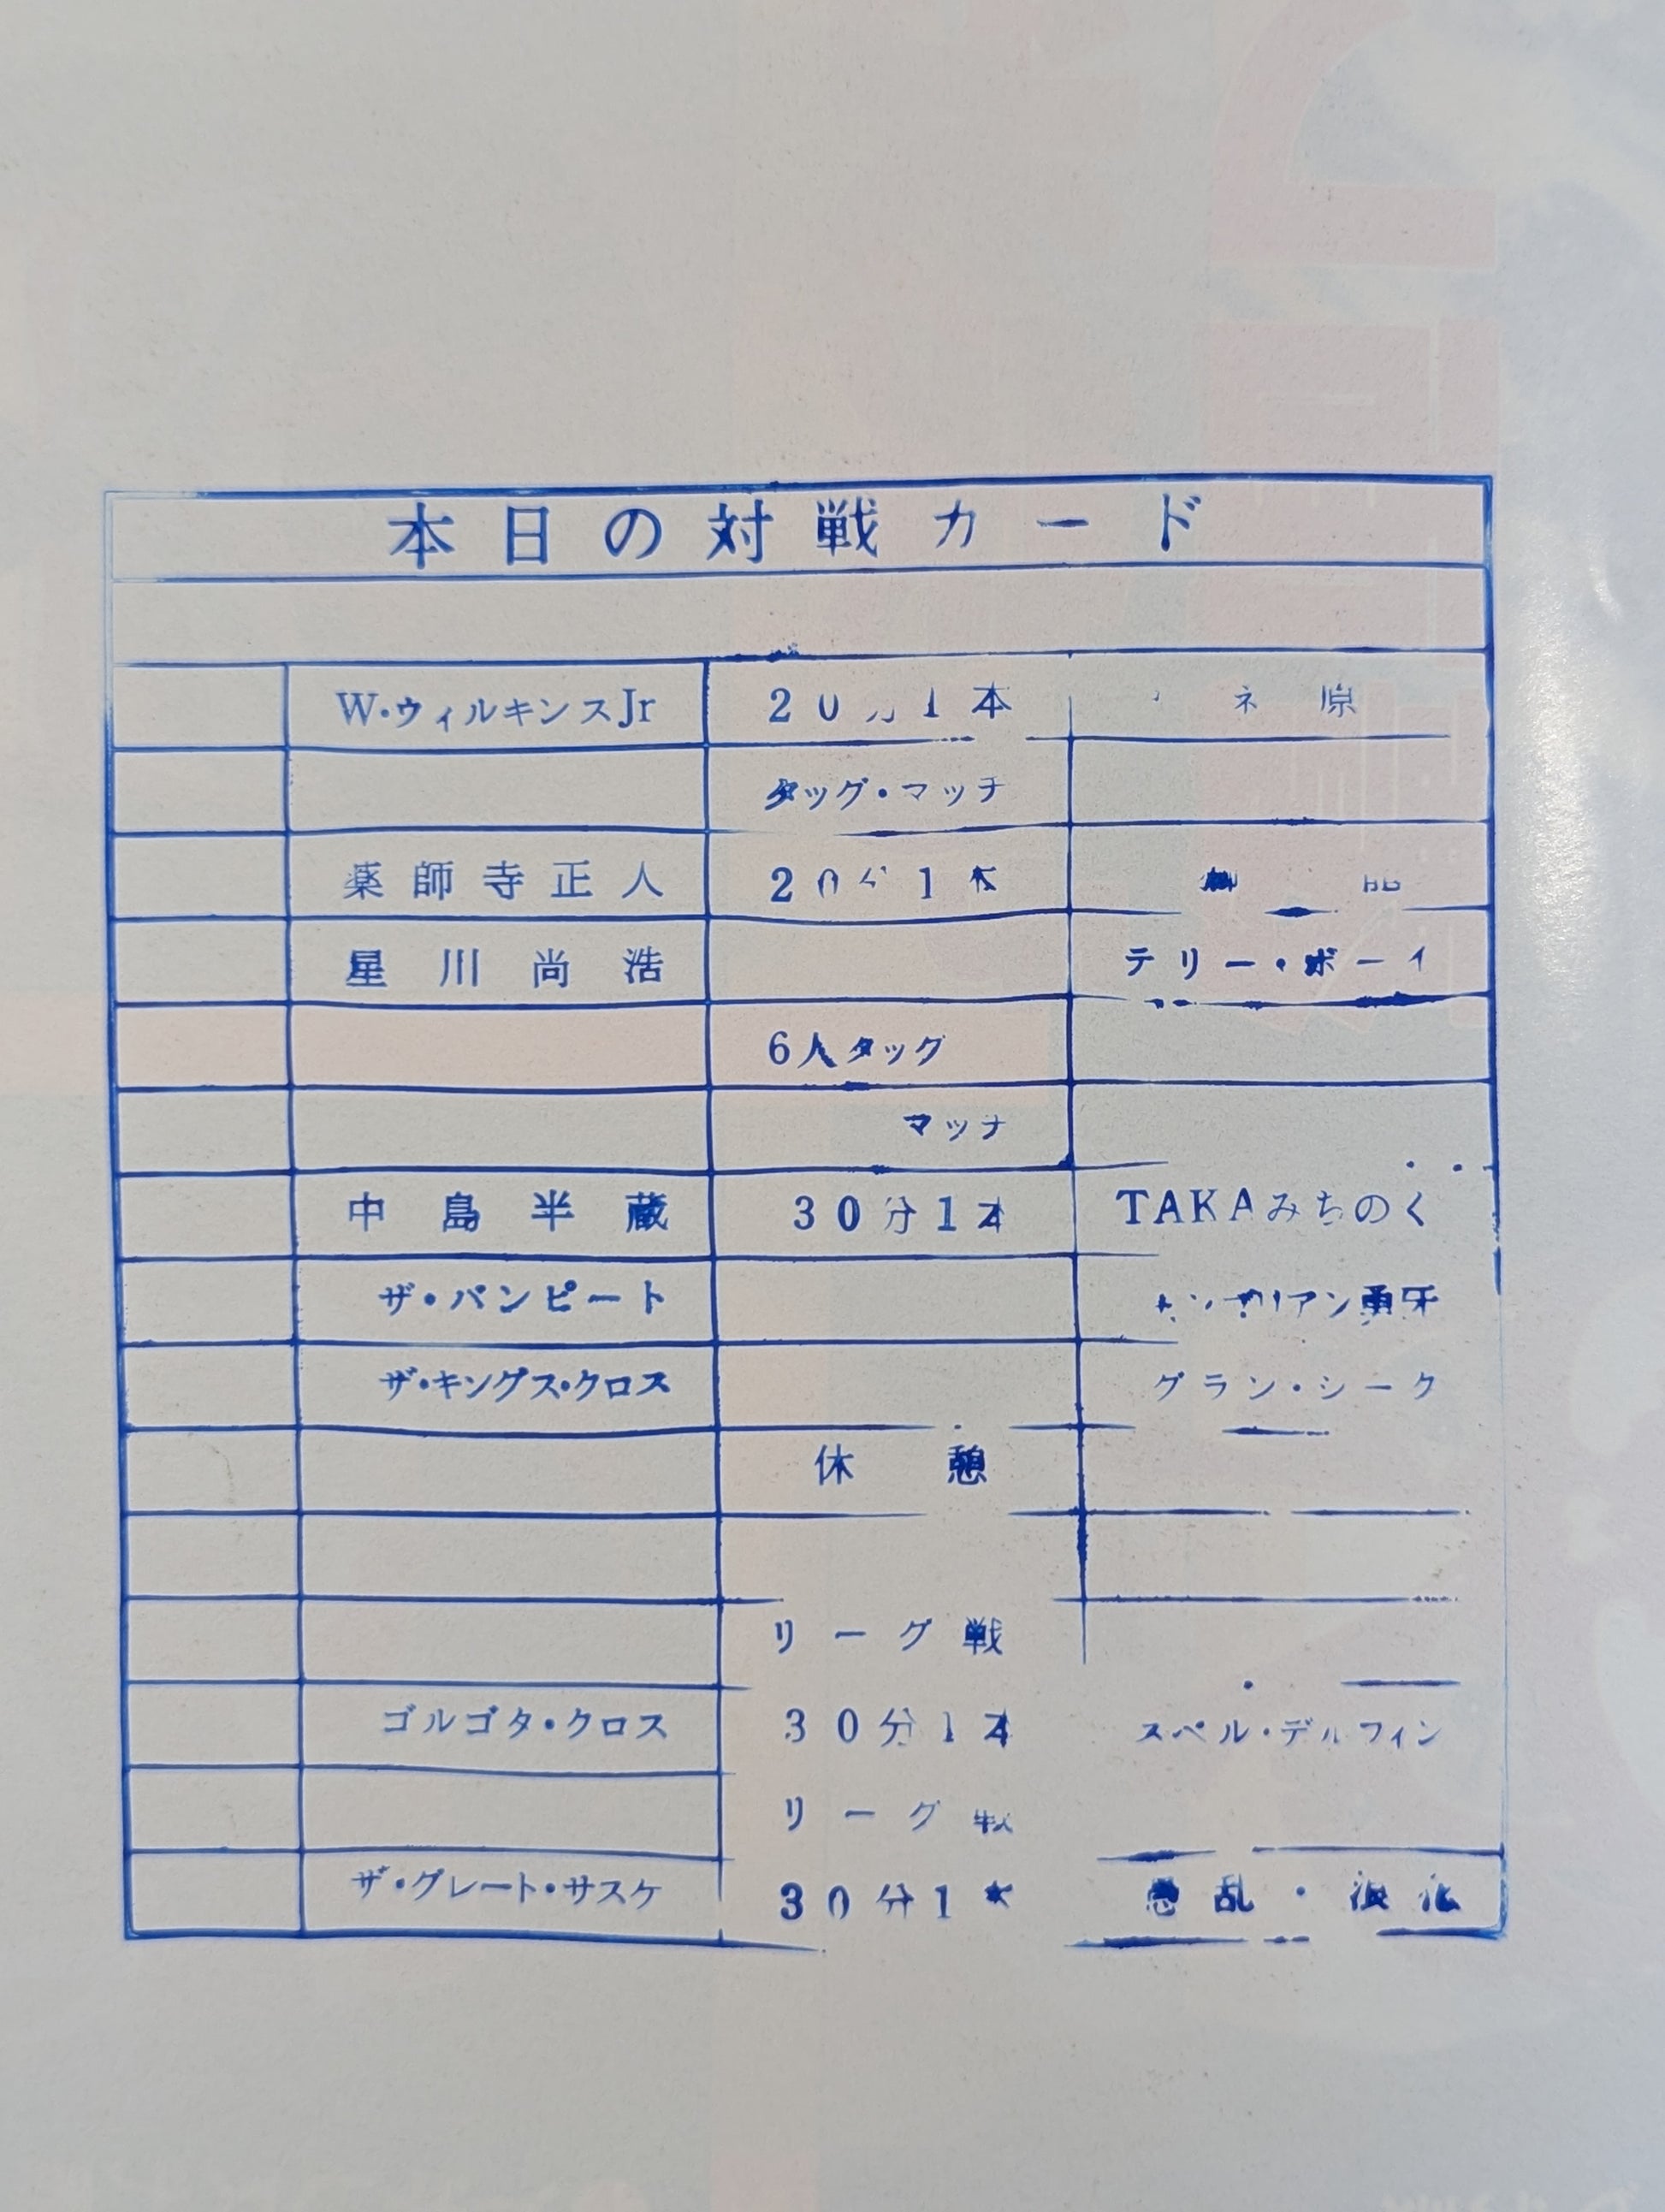 本日の対戦カード
W・ウィルキンスJr 20分1本 原
タッグ・マッチ
薬師寺正人 20分1本
星川尚浩 テリー・ボーイ
6人タッグ
マッチ
中島半蔵 30分1本 TAKAみちのく
ザ・バンピート 勇牙
ザ・キングス・クロス グラン・シーク
休憩
リーグ戦
ゴルゴタ・クロス 30分1本 スペル・デルフィン
リーグ戦
ザ・グレート・サスケ 30分1本